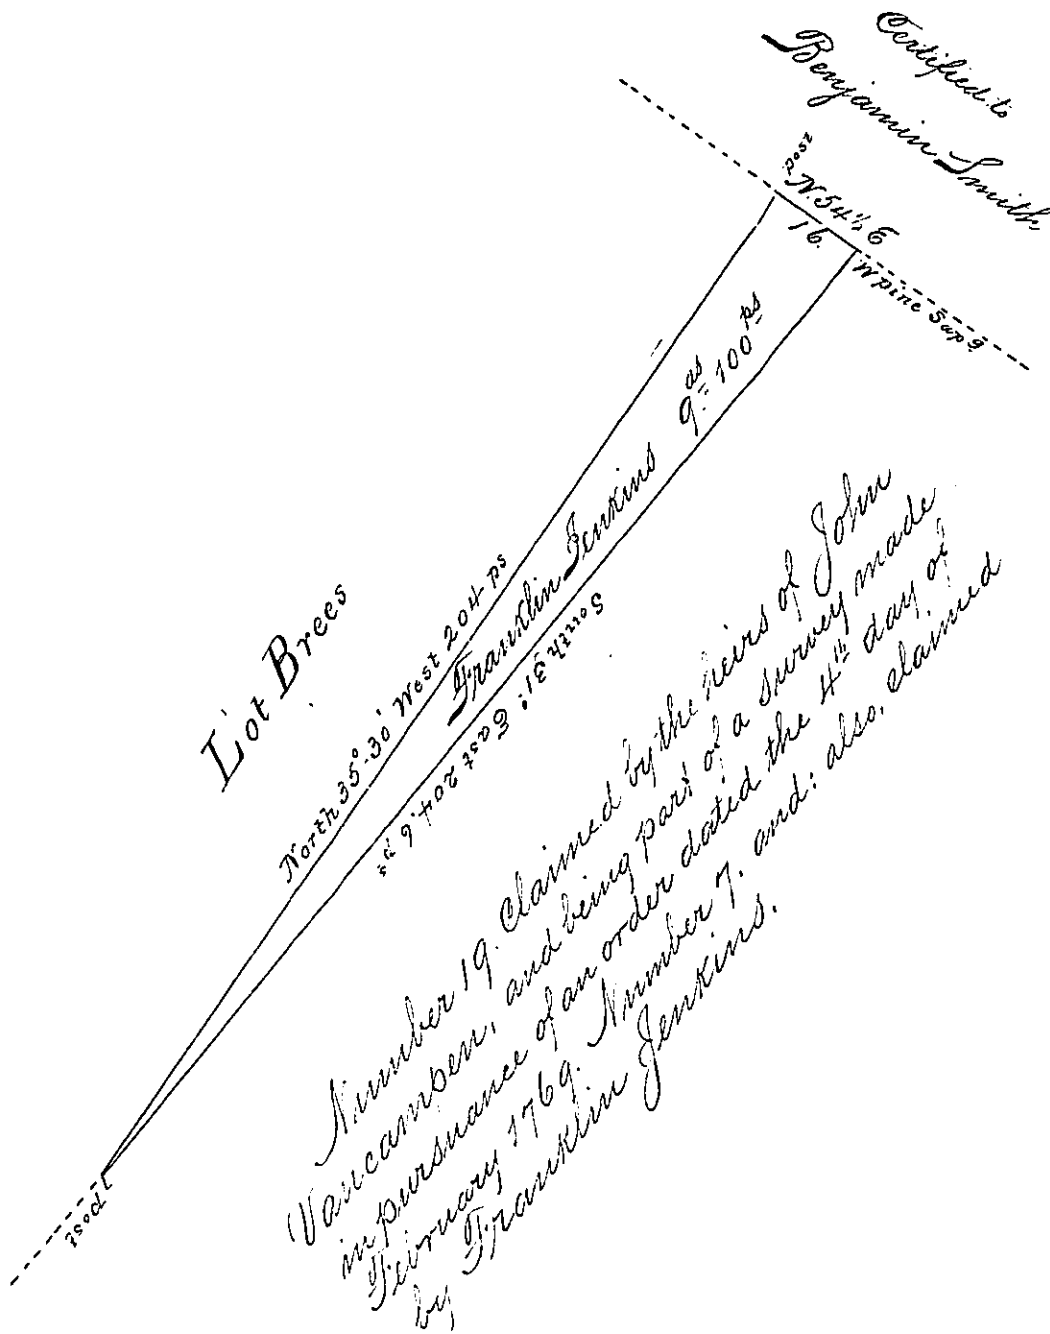 Certified to
Benjamin Smith
post
N. 54½ E
16.
W pine Sapg
Franklin Jenkins 9as 100ps
Lot Brees
North 35°-30' West 204 ps
South 31° East 204.6 ps
post
Number 19. Claimed by the heirs of John
Vancampen, and being part of a Survey made
in pursuance of an order dated the 4th day of
February 1769. Number 7. and: also, claimed
by Franklin Jenkins.